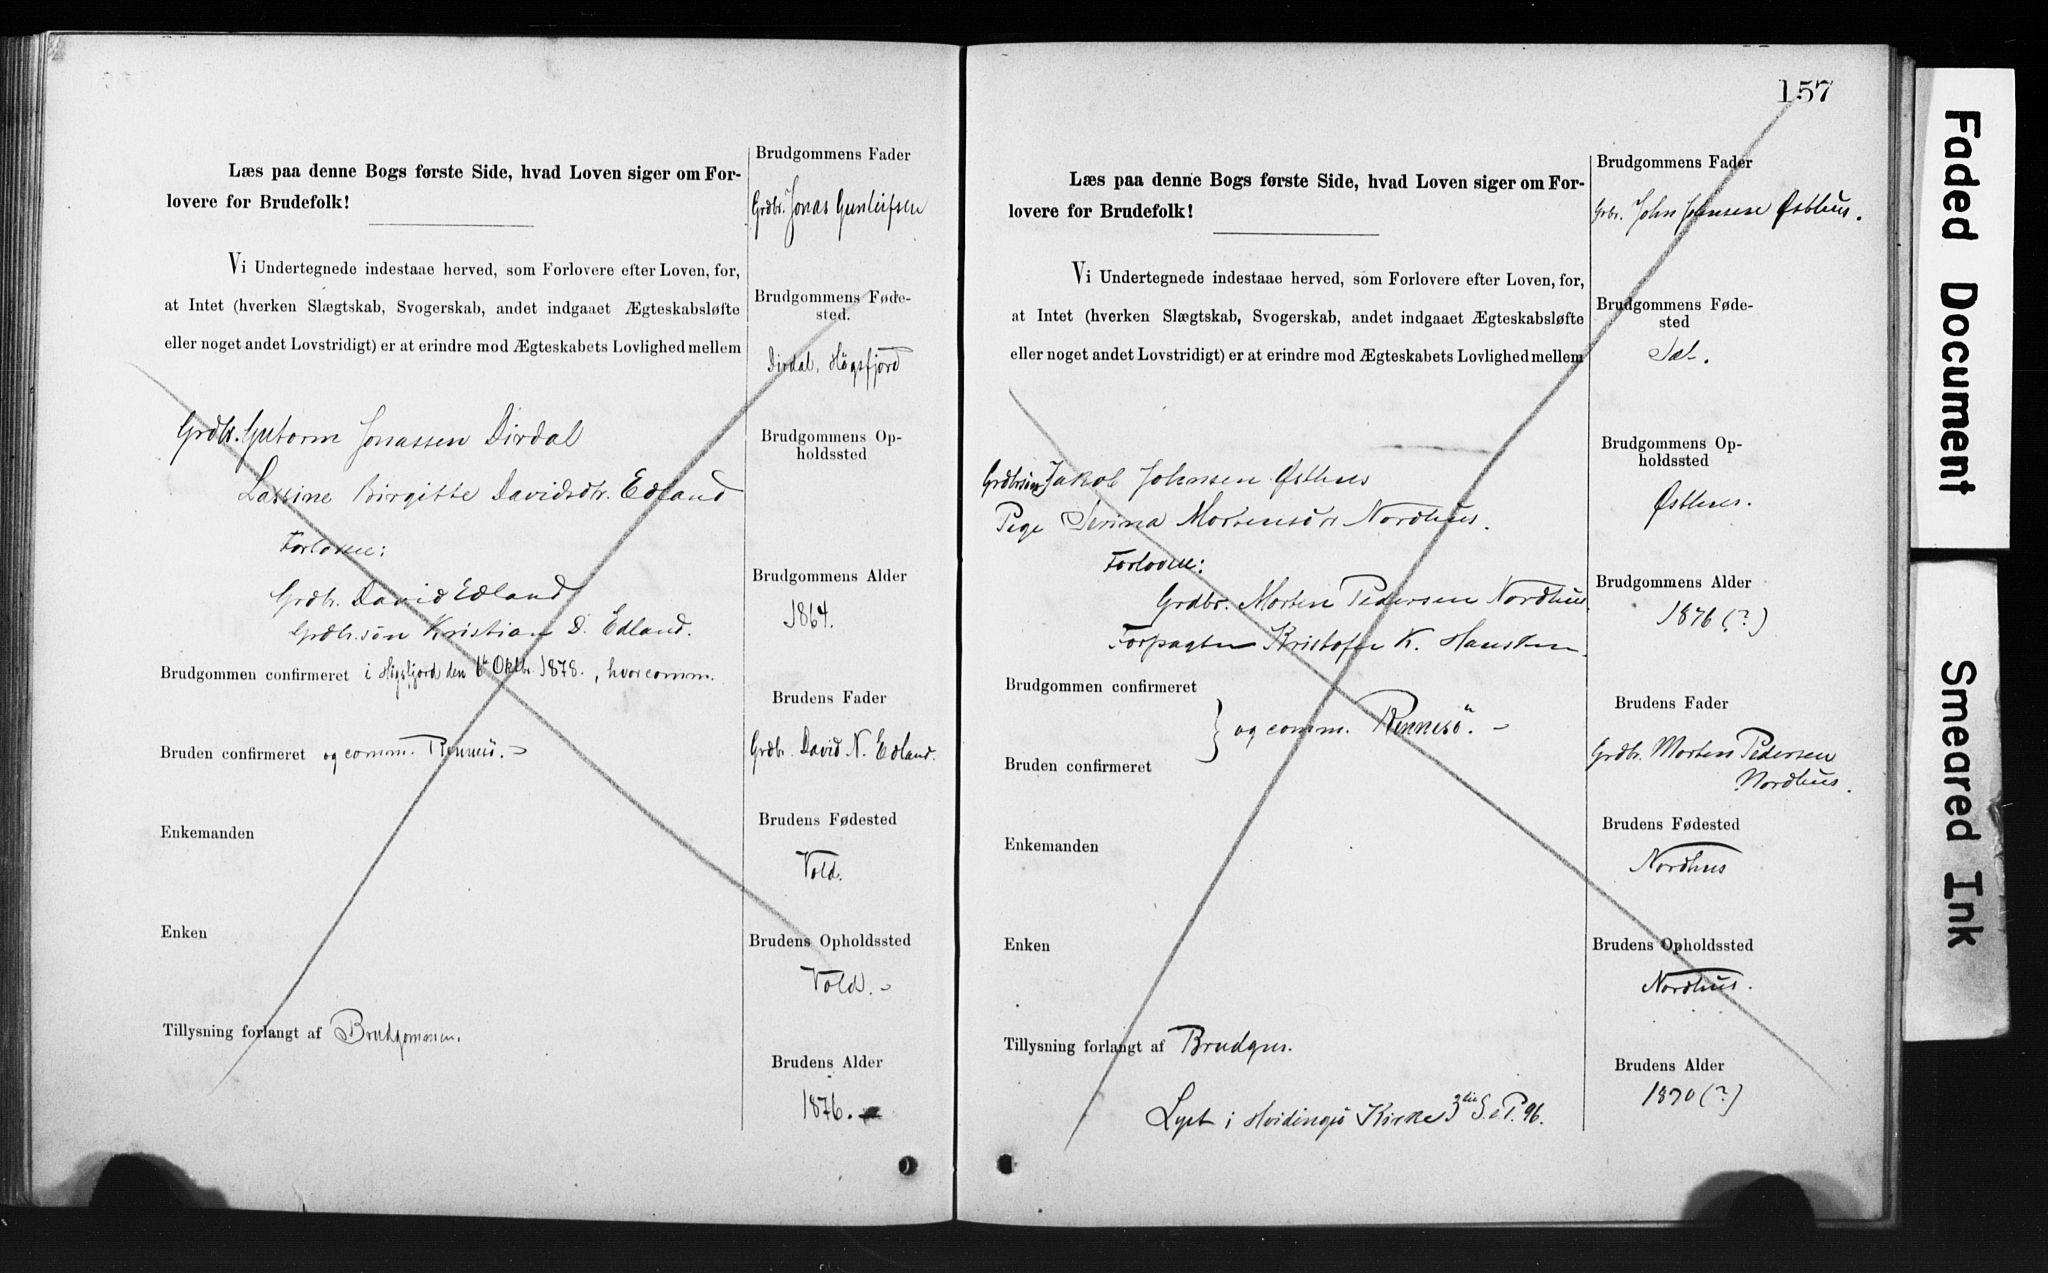 Læs paa denne Bogs første Side, hvad Loven siger om For-
lovere for Brudefolk!
Vi Undertegnede indestaae herved, som Forlovere efter Loven, for,
at Intet (hverken Slægtskab, Svogerskab, andet indgaaet Ægteskabsløfte
eller noget andet Lovstridigt) er at erindre mod Ægteskabets Lovlighed mellem
Grdbr. Gutorm Jonassen Dirdal
Lassine Birgitte Davidsdtr. Edland
Forlovere:
Grdbr. David Edland
Grdbr.søn Kristian D. Edland.
Brudgommen confirmeret i Høgsfjord den Oktbr. 1878., hvor comm.
Bruden confirmeret og comm. Rennesø. -
Enkemanden
Enken
Tillysning forlangt af Brudgommen.
Brudgommens Fader
Grdbr. Jonas Gunleifsen
Brudgommens Føde-
sted.
Dirdal, Høgsfjord
Brudgommens Op-
holdssted
Brudgommens Alder
1864.
Brudens Fader
Grdbr. David N. Edland.
Brudens Fødested
Vold.
Brudens Opholdssted
Vold. -
Brudens Alder
1876.
157
Læs paa denne Bogs første Side, hvad Loven siger om For-
lovere for Brudefolk!
Vi Undertegnede indestaae herved, som Forlovere efter Loven, for,
at Intet (hverken Slægtskab, Svogerskab, andet indgaaet Ægteskabsløfte
eller noget andet Lovstridigt) er at erindre mod Ægteskabets Lovlighed mellem
Grdbrsøn Jakob Johnsen Østhus
Pige Serina Mortensdtr Nordhus.
Forlovere:
Grdbr. Morten Pedersen Nordhus
Forpagter Kristofer K. Hausken.
Brudgommen confirmeret
} og comm. Rennesø. -
Bruden confirmeret
Enkemanden
Enken
Tillysning forlangt af Brudgm.
Lyst i Hvidingsø Kirke 3die S. e P. 96.
Brudgommens Fader
Grbr. John Johnsen Østhus.
Brudgommens Føde-
sted
Brudgommens Op-
holdssted
Østhus.
Brudgommens Alder
1876 (?)
Brudens Fader
Grdbr. Morten Pedersen
Nordhus.
Brudens Fødested
Nordhus
Brudens Opholdssted
Nordhus.
Brudens Alder
1870 (?)
Faded Document
Smeared Ink